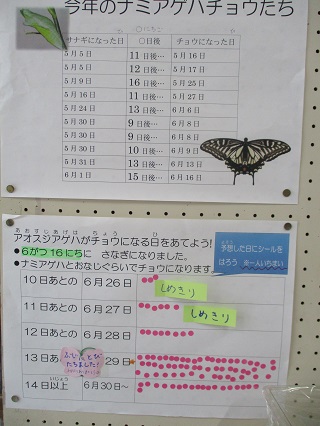 今年のナミアゲハチョウたち
サナギになった日 〇日後 チョウになった日
5月5日 11日後… 5月16日
5月5日 12日後… 5月17日
5月9日 16日後… 5月25日
5月16日 11日後… 5月27日
5月24日 13日後… 6月6日
5月30日 9日後… 6月8日
5月30日 9日後… 6月8日
5月30日 10日後… 6月9日
5月31日 13日後… 6月13日
6月1日 15日後… 6月16日
アオスジアゲハがチョウになる日をあてよう!
●6がつ16にちに さなぎになりました。
●ナミアゲハとおなじぐらいでチョウになります。
予想した日にシールを
はろう ※一人いちまい
10日あとの 6月26日
しめきり
11日あとの 6月27日
しめきり
12日あとの 6月28日
13日あ 29日
14日以上 6月30日~